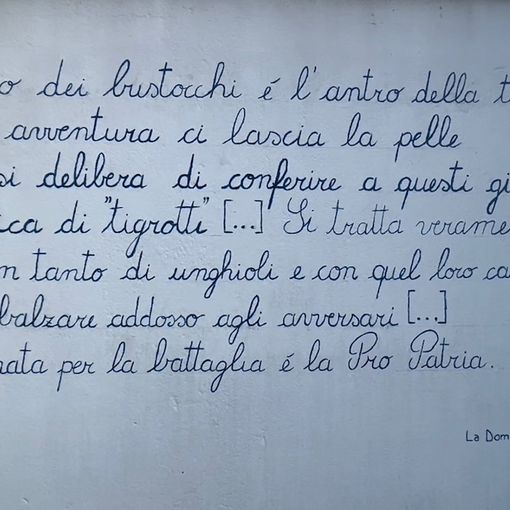 o dei bustocchi é l'antro della t
avventura ci lascia la pelle
si delibera di conferire a questi gi
ica di "tigrotti" [...] Si tratta verame
n tanto di unghioli e con quel loro ca
balzare addosso agli avversari [...]
nata per la battaglia é la Pro Patria.
La Dom